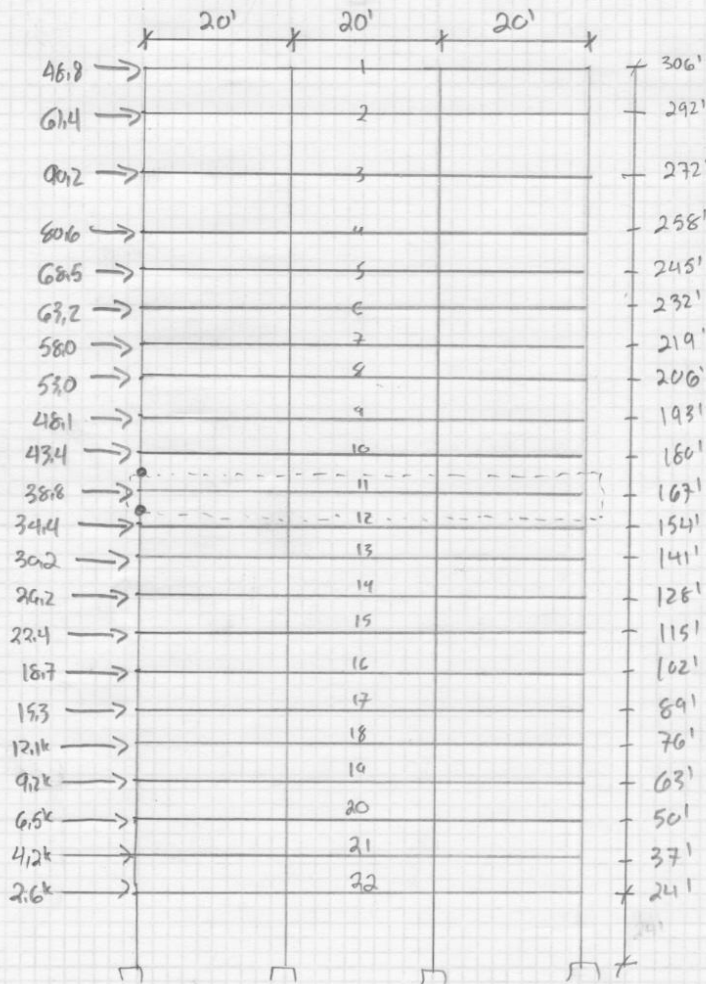 20' 20' 20'
46.8 1 306'
61.4 2 292'
90.2 3 272'
80.6 4 258'
68.5 5 245'
63.2 6 232'
58.0 7 219'
53.0 8 206'
48.1 9 193'
43.4 10 180'
38.8 11 167'
34.4 12 154'
30.2 13 141'
26.2 14 128'
22.4 15 115'
18.7 16 102'
15.3 17 89'
12.1k 18 76'
9.2k 19 63'
6.5k 20 50'
4.2k 21 37'
2.6k 22 24'